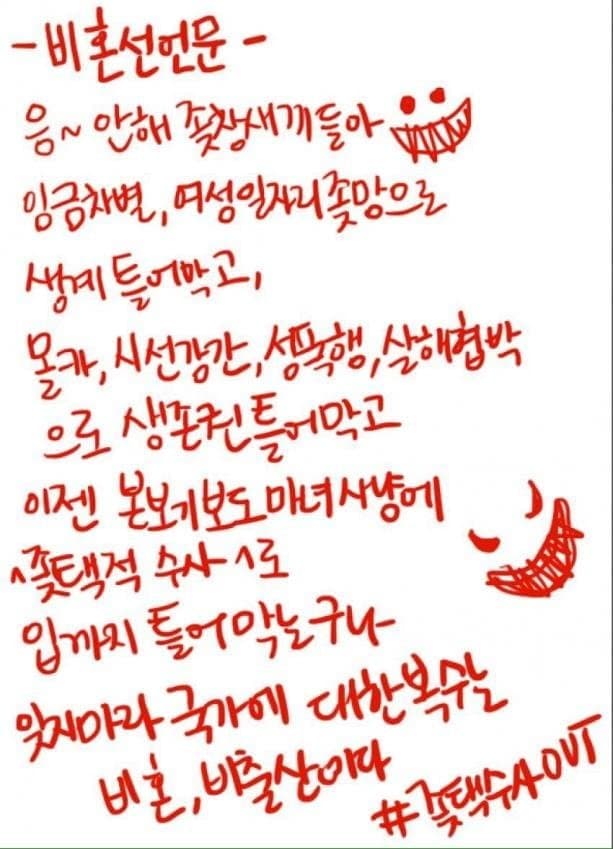 - 비혼선언문 -
음~ 안해 좆창새끼들아
임금차별, 여성일자리좆망으로
생계 틀어막고,
몰카, 시선강간, 성폭행, 살해협박
으로 생존권 틀어막고
이젠 본보기보도마녀사냥에
^좆택적 수사^로
입까지 틀어막는구나
잊지마라 국가에 대한복수는
비혼, 비출산이다
#좆택수사OUT